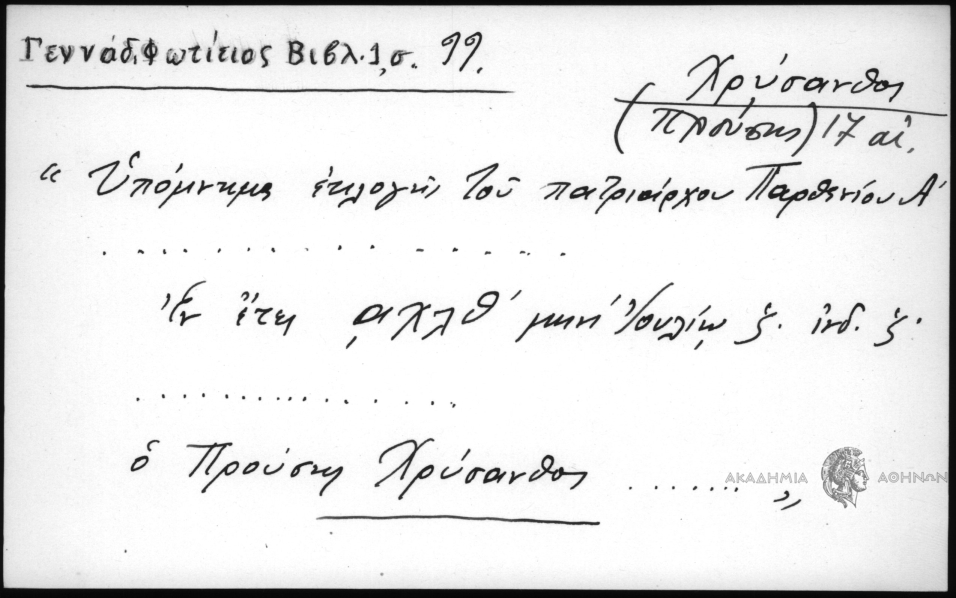 Γεννάδ. Φωτίτιος Βιβλ. 1, σ. 99.
Χρύσανθος
(Προύσης) 17 αἰ.
“ Ὑπόμνημα ἐκλογῆς τοῦ πατριάρχου Παρθενίου Α'
. . . . . . . . . . . . . . . .
Ἐν ἔτει ͵αχλθ' μηνὶ Ἰουλίῳ ζ. ἰνδ. ζ.
. . . . . . . . . . . . . . . .
ὁ Προύσης Χρύσανθος . . . . . . . „
ΑΚΑΔΗΜΙΑ ΑΘΗΝΩΝ